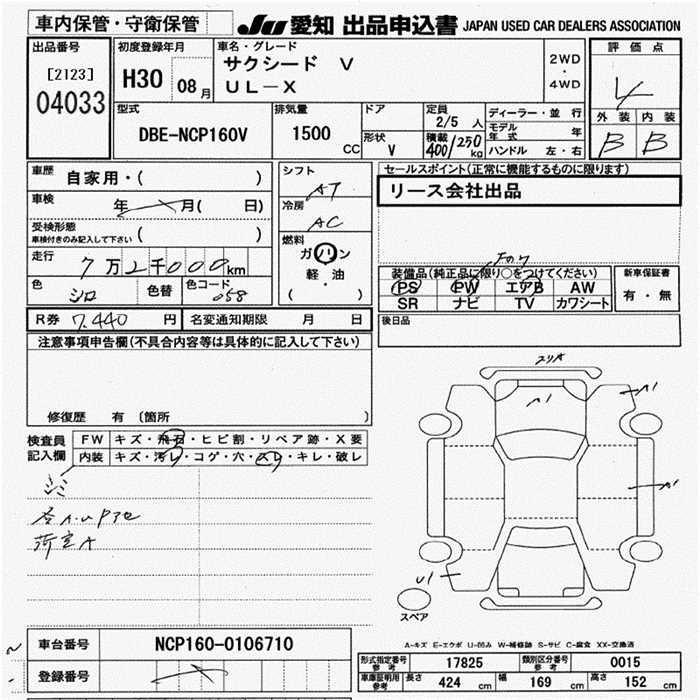 車内保管・守衛保管 JU 愛知 出品申込書 JAPAN USED CAR DEALERS ASSOCIATION
出品番号 初度登録年月 車名・グレード 評価点
[2123] H30 08月 サクシード V 2WD
・
04033 UL-X 4WD 4
型式 排気量 ドア 定員 2/5 人 ディーラー・並行 外装 内装
DBE-NCP160V 1500 CC 形状 V 積載 400/250 kg モデル年式 年 B B
ハンドル 左・右
車歴 自家用・( ) シフト AT セールスポイント(正常に機能するものに限ります)
車検 年 月( 日) 冷房 AC リース会社出品
受検形態 ( )
車検付きのみ記入して下さい
燃料
走行 7万2千000km ガソリン
色 シロ 色替 色コード 058 軽・油
( )
装備品(純正品に限り○をつけてください) 新車保証書
PS PW エアB AW 有・無
SR ナビ TV カワシート
R券 7,440 円 名変通知期限 月 日 後日品
注意事項申告欄(不具合内容等は具体的に記入して下さい)
修復歴 有 (箇所 )
検査員 FW キズ・飛石・ヒビ割・リペア跡・X要
記入欄 内装 キズ・汚レ・コゲ・穴・スレ・キレ・破レ
シミ
荷室A
スリA
A1
A1
A1
U1
スペア
A-キズ E-エクボ U-凹み W-補修跡 S-サビ C-腐食 XX-交換済
車台番号 NCP160-0106710
登録番号
形式指定番号 参考 17825 類別区分番号 参考 0015
車庫証明用 参考 長さ 424 cm 幅 169 cm 高さ 152 cm